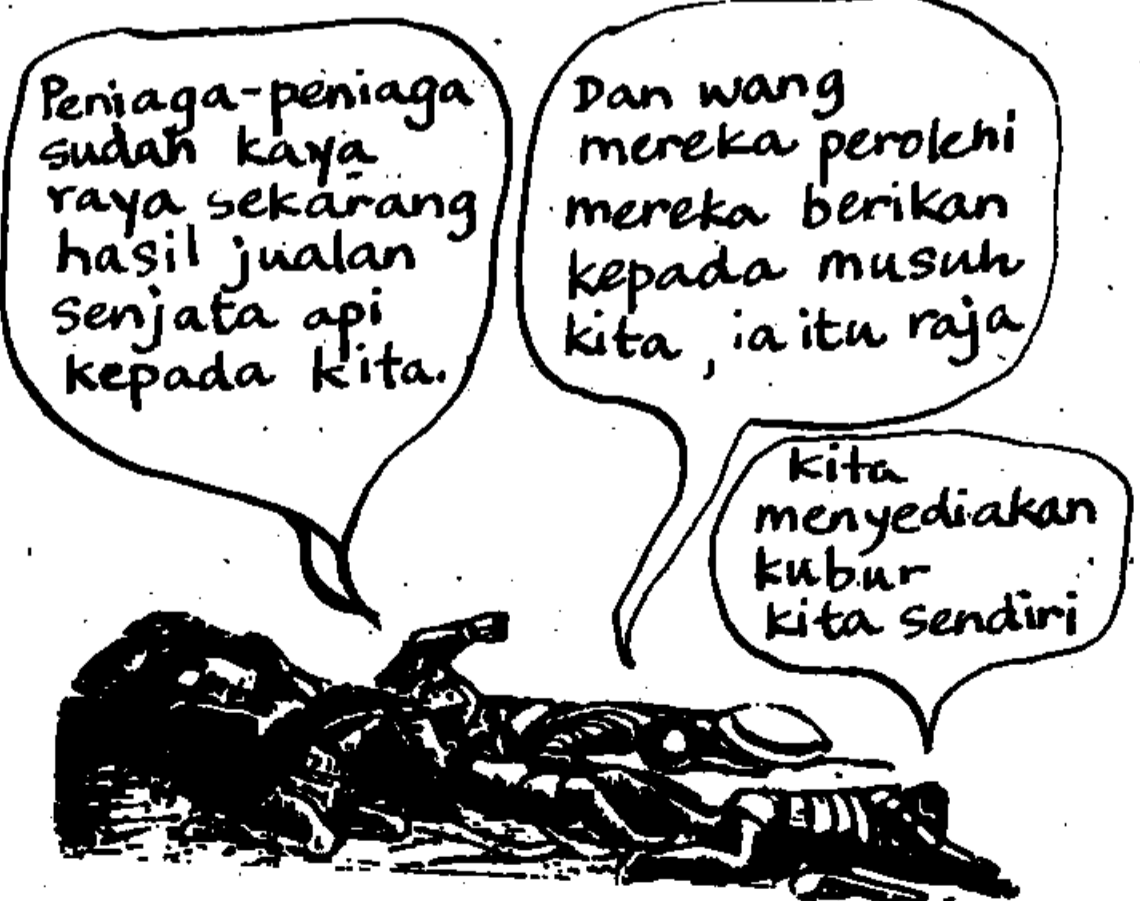 Peniaga-peniaga
sudah kaya
raya sekarang
hasil jualan
senjata api
kepada kita.
Dan wang
mereka perolehi
mereka berikan
kepada musuh
kita, ia itu raja
kita
menyediakan
kubur
kita sendiri